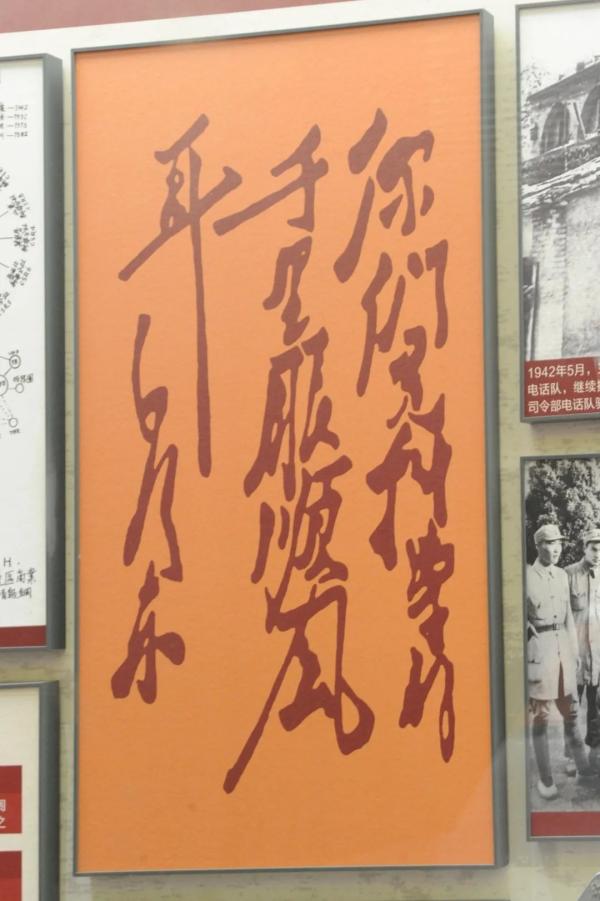 你们是科学的
千里眼顺风
耳 毛泽东
1942年5月，
电话队，继续
司令部电话队